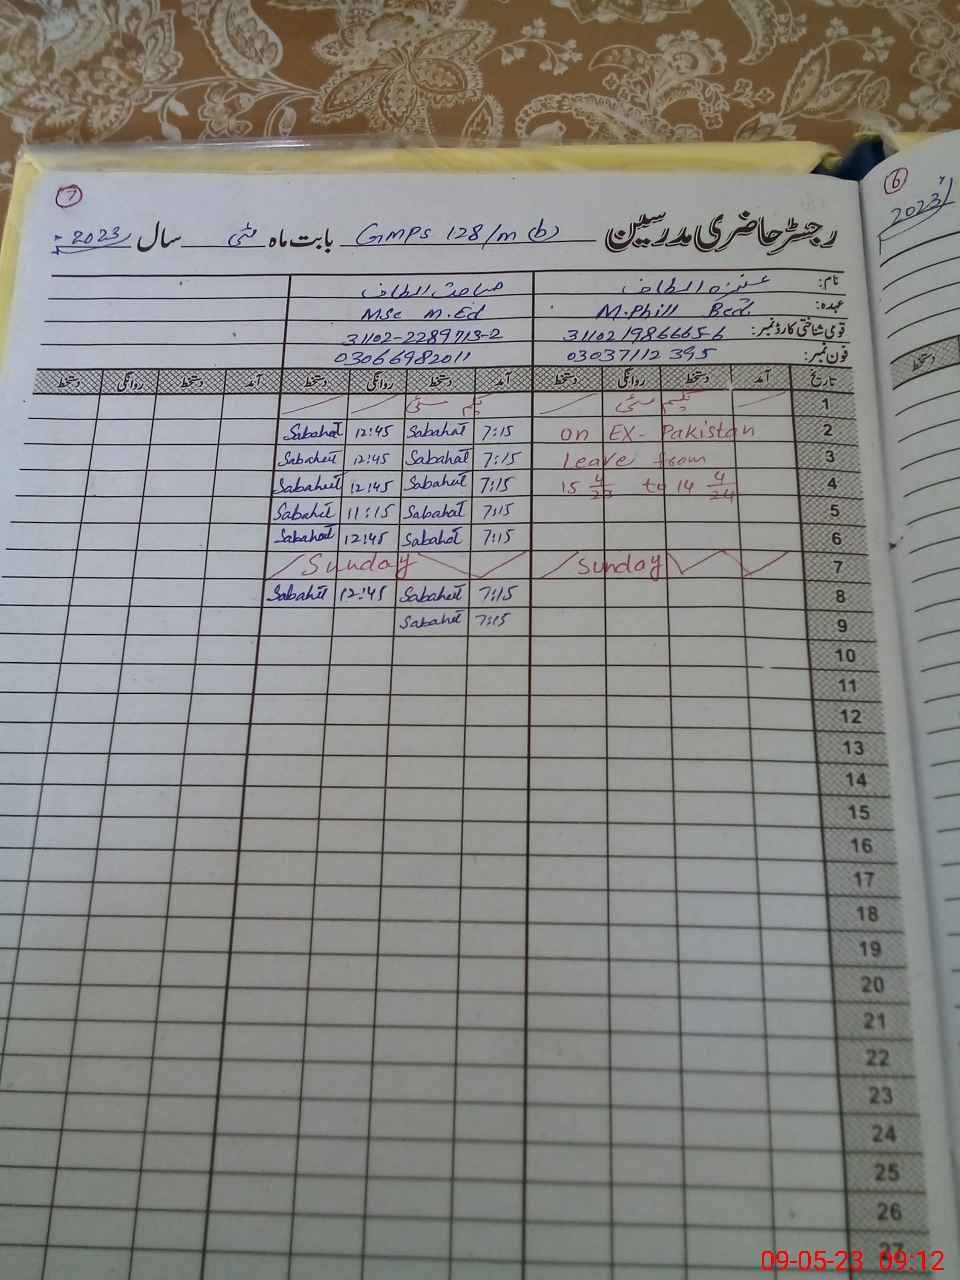 7
رجسٹر حاضری مدرسین GMPS 128/m (b) بابت ماہ مئی سال 2023ء
6
2023ء
نام: عنیزہ الطاف صباحت الطاف
عہدہ: M.Phill Bed. MSc M.Ed
قومی شناختی کارڈ نمبر: 3110219866656 31102-2289713-2
فون نمبر: 03037112395 03066982011
تاریخ آمد دستخط روانگی دستخط آمد دستخط روانگی دستخط آمد دستخط روانگی دستخط
دستخط
1 یکم مئی یکم مئی
2 on EX-Pakistan 7:15 Sabahat 12:45 Sabahat
3 Leave from 7:15 Sabahat 12:45 Sabahat
4 15 4/23 to 14 4/24 7:15 Sabahat 12:45 Sabahat
5 7:15 Sabahat 11:15 Sabahat
6 7:15 Sabahat 12:45 Sabahat
7 Sunday Sunday
8 7:15 Sabahat 12:45 Sabahat
9 7:15 Sabahat
10
11
12
13
14
15
16
17
18
19
20
21
22
23
24
25
26
27
09-05-23 09:12